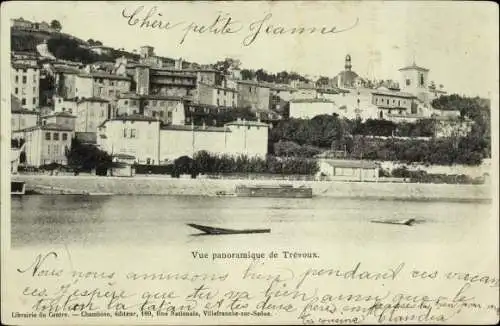 Chère petite Jeanne
Vue panoramique de Trévoux.
Nous nous amusons bien pendant ces vacances
J'espère que tu va bien ainsi que le
latin et les deux
Librairie du Centre. — Chambone, éditeur, 169, Rue Nationale, Villefranche-sur-Saône.